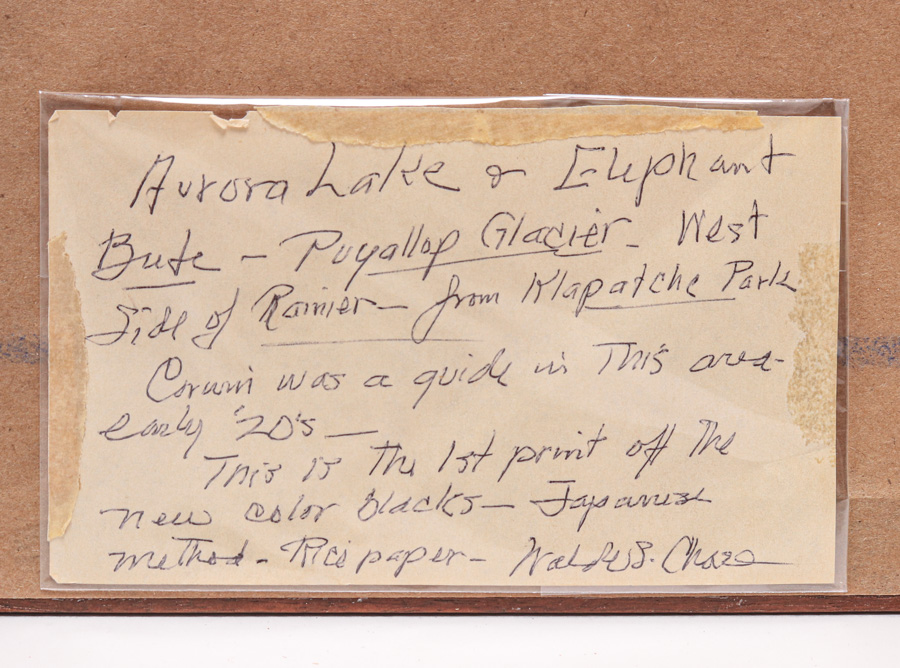 Aurora Lake & Elephant
Bute - Puyallop Glacier - West
Side of Rainier - from Klapatche Park
Corwin was a guide in This area -
early '20's -
This is The 1st print off The
new color blocks - Japanese
method - Rice paper - Waldo S. Chase